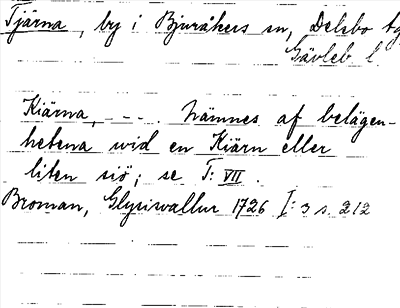 Tjärna, by i Bjuråkers sn, Delsbo tg
Gävleb. l
Kiärna, - - - . nämnes af belägen-
hetena wid en Kiärn eller
liten siö; se T: VII.
Broman, Glysisvallur 1726 I: 3 s. 212